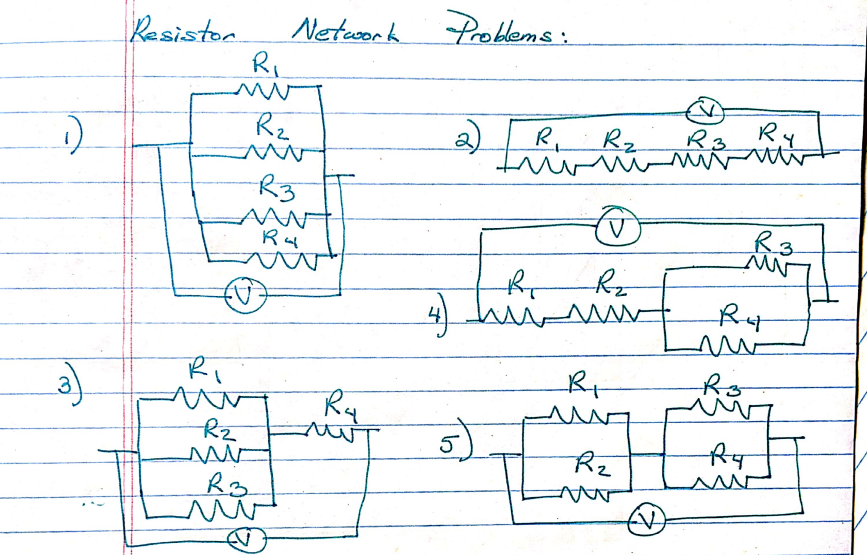 Resistor Network Problems:
1)
R1
R2
R3
R4
V
2)
V
R1 R2 R3 R4
4)
V
R1 R2
R3
R4
3)
R1
R2
R3
R4
V
5)
R1
R2
R3
R4
V